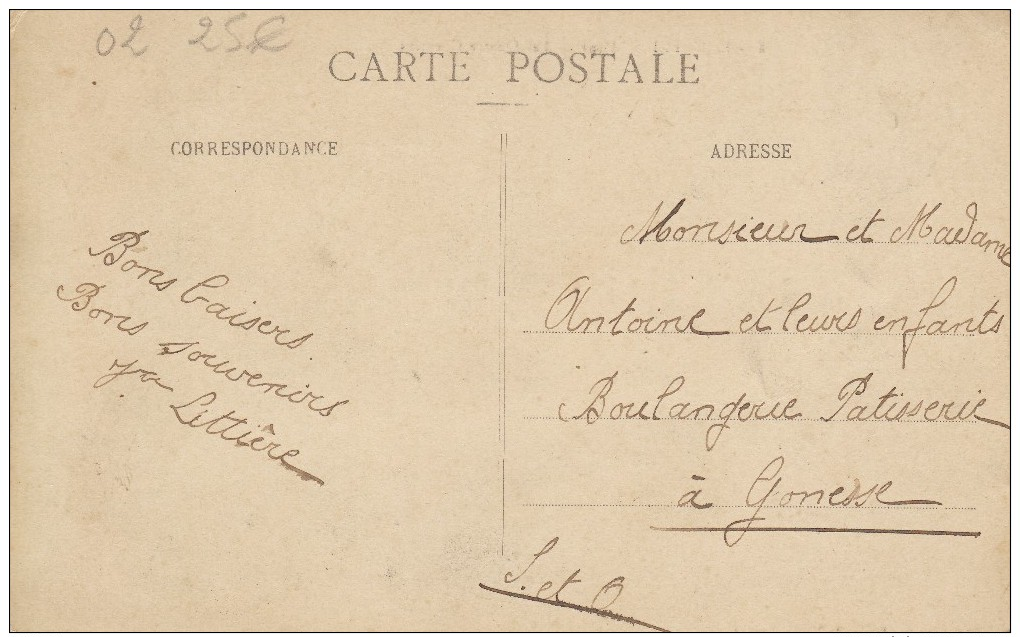 02 25€
CARTE POSTALE
CORRESPONDANCE
Bons baisers
Bons souvenirs
Littière
ADRESSE
Monsieur et Madame
Antoine et leurs enfants
Boulangerie Patisserie
à Gonesse
S. et O.